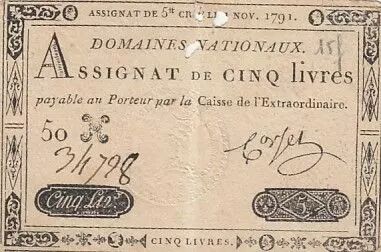 ASSIGNAT DE 5tt CRÉÉ LE 1er NOV. 1791.
DOMAINES NATIONAUX.
15f
ASSIGNAT DE CINQ livres
payable au Porteur par la Caisse de l'Extraordinaire.
50
34798
Corsel
Cinq Liv.
5tt
CINQ LIVRES.